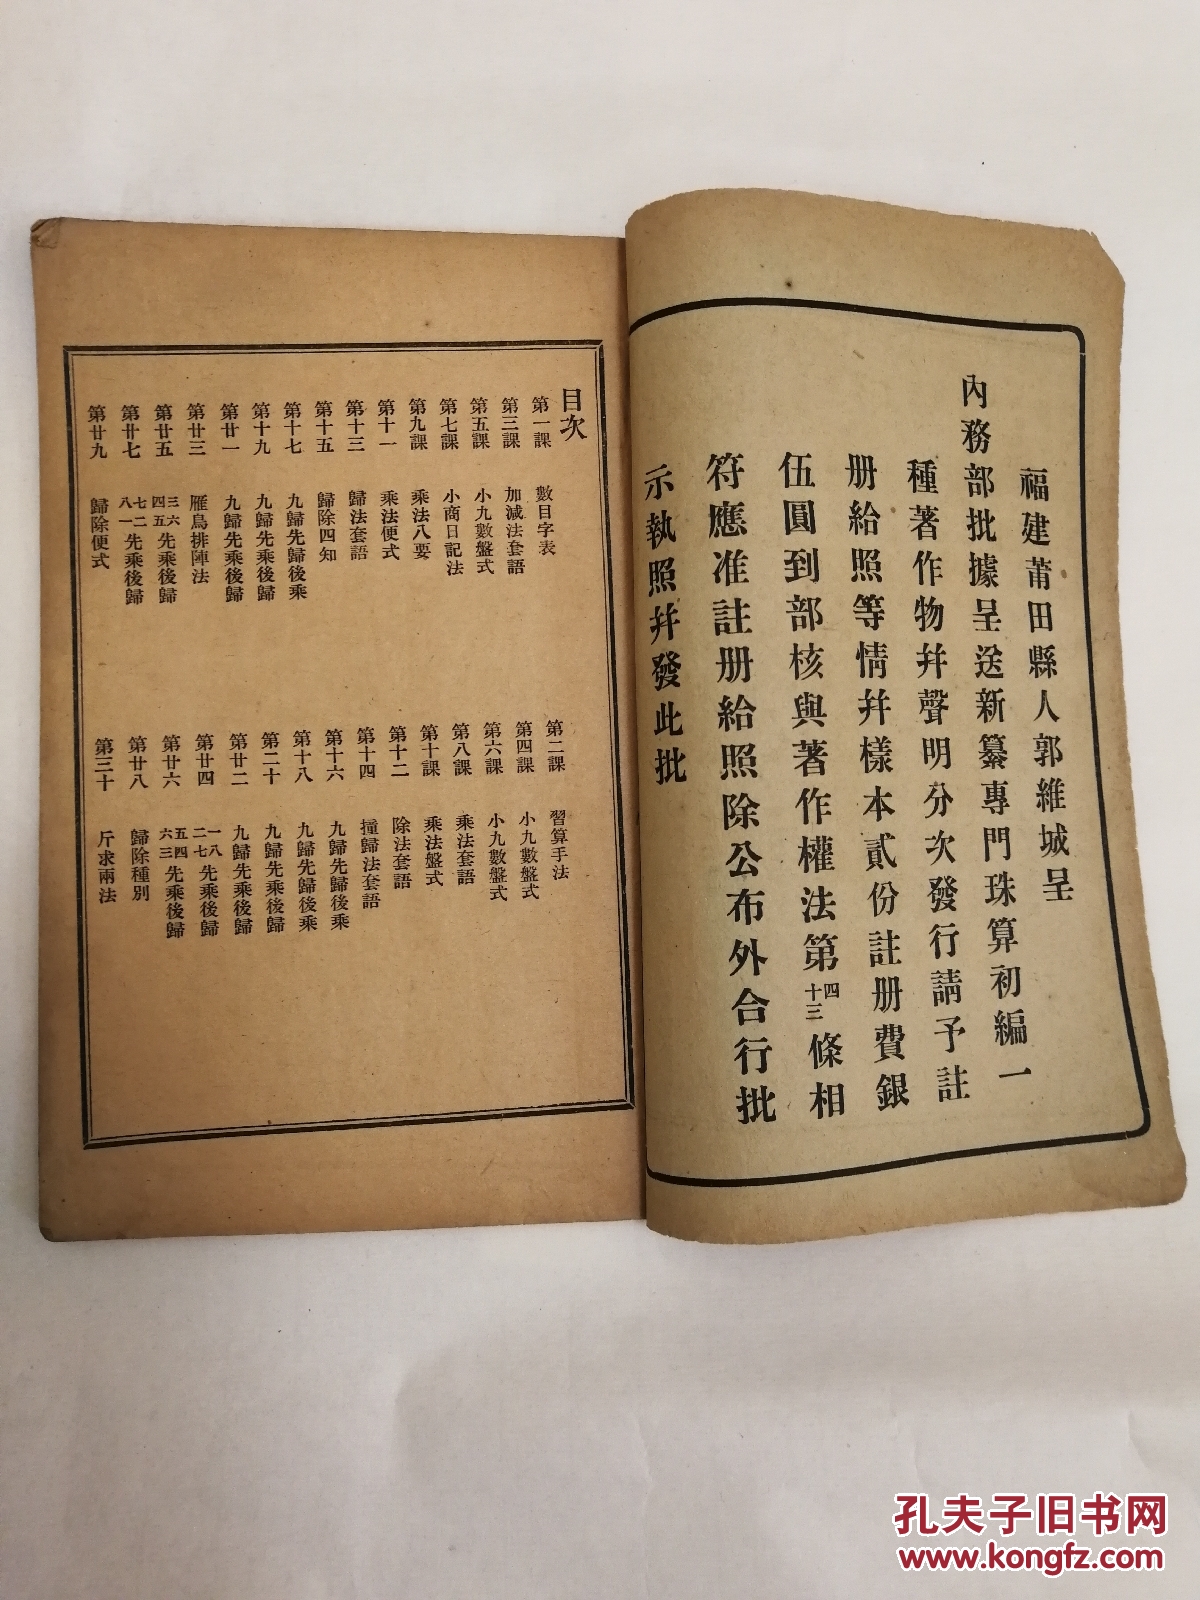 福建莆田縣人郭維城呈
內務部批據呈送新纂專門珠算初編一
種著作物幷聲明分次發行請予註
册給照等情幷樣本貳份註册費銀
伍圓到部核與著作權法第四十三條相
符應准註册給照除公布外合行批
示執照幷發此批
目次
第一課 數目字表 第二課 習算手法
第三課 加減法套語 第四課 小九數盤式
第五課 小九數盤式 第六課 小九數盤式
第七課 小商日記法 第八課 乘法套語
第九課 乘法八要 第十課 乘法盤式
第十一 乘法便式 第十二 除法套語
第十三 歸法套語 第十四 撞歸法套語
第十五 歸除四知 第十六 九歸先歸後乘
第十七 九歸先歸後乘 第十八 九歸先歸後乘
第十九 九歸先乘後歸 第二十 九歸先乘後歸
第廿一 九歸先乘後歸 第廿二 九歸先乘後歸
第廿三 雁鳥排陣法 第廿四 一八二七先乘後歸
第廿五 三六四五先乘後歸 第廿六 五四六三先乘後歸
第廿七 七二八一先乘後歸 第廿八 歸除種別
第廿九 歸除便式 第三十 斤求兩法
孔夫子旧书网
www.kongfz.com